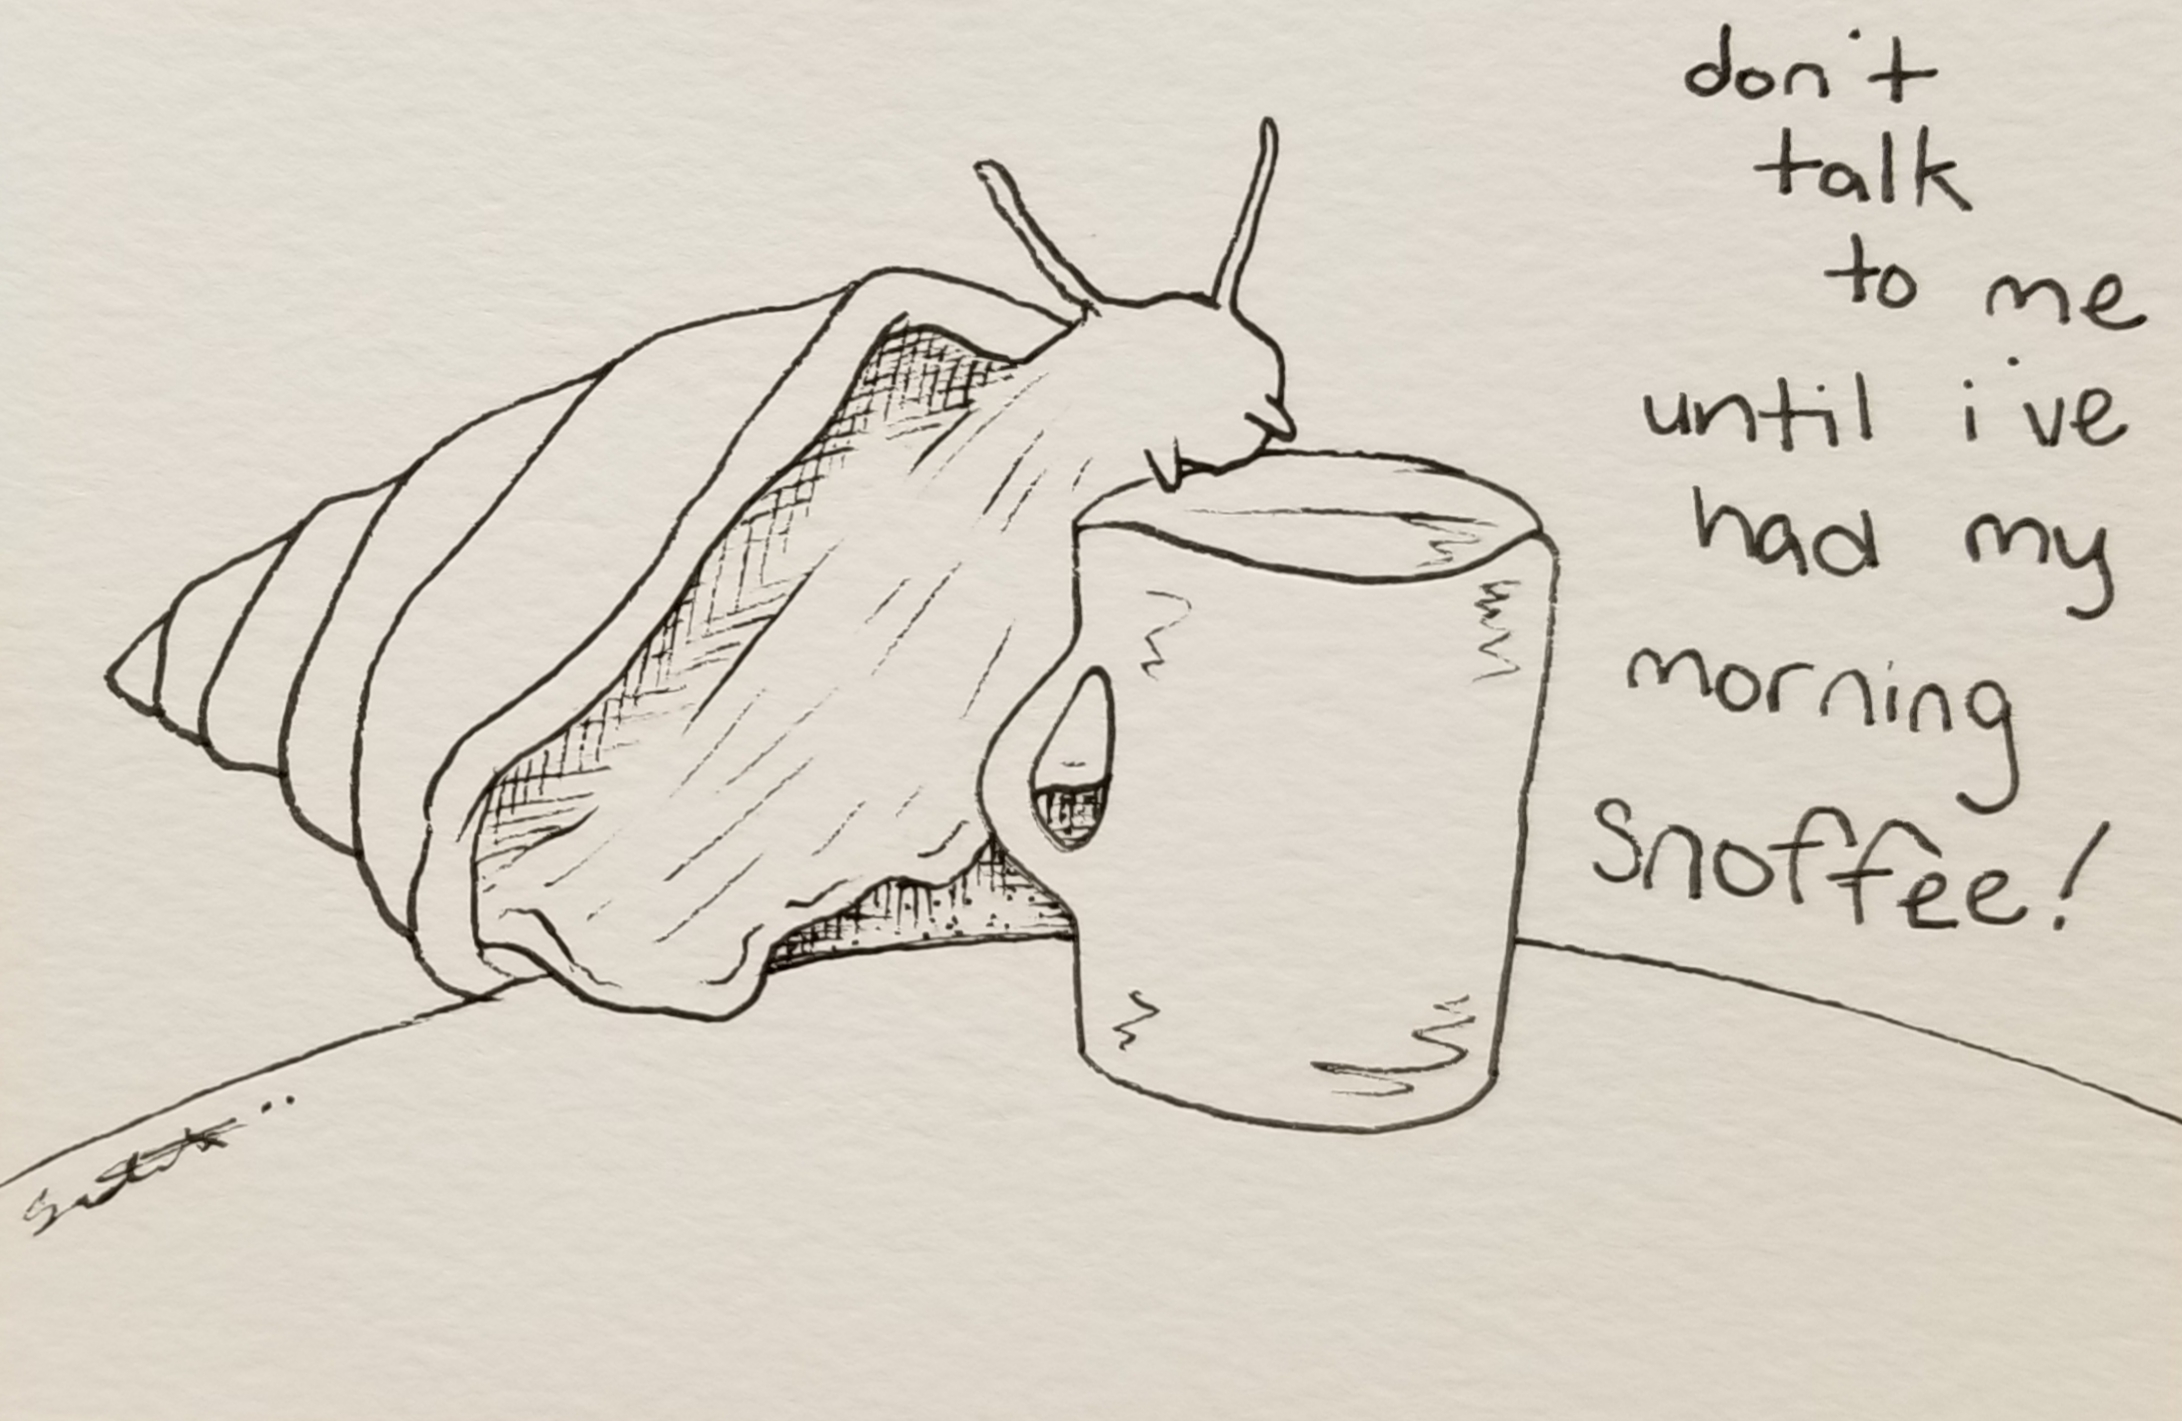 don't
talk
to me
until i've
had my
morning
snoffee!